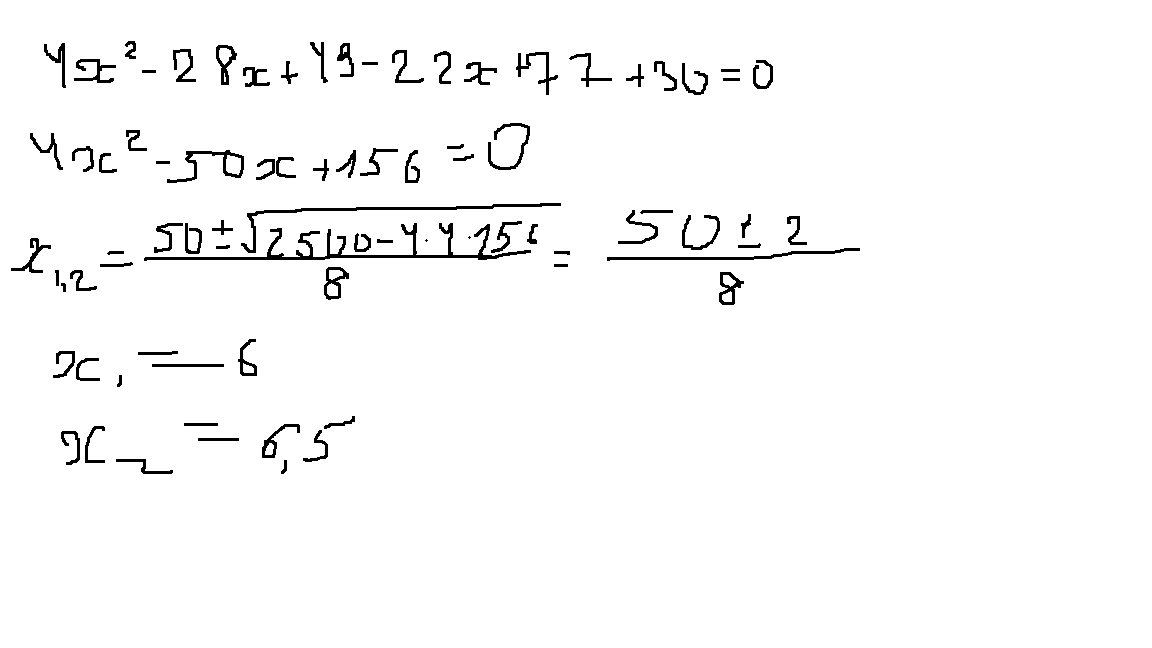 4x² - 28x + 49 - 22x + 77 + 30 = 0
4x² - 50x + 156 = 0
x₁,₂ = (50 ± √(2500 - 4·4·156))/8 = (50 ± 2)/8
x₁ = 6
x₂ = 6,5